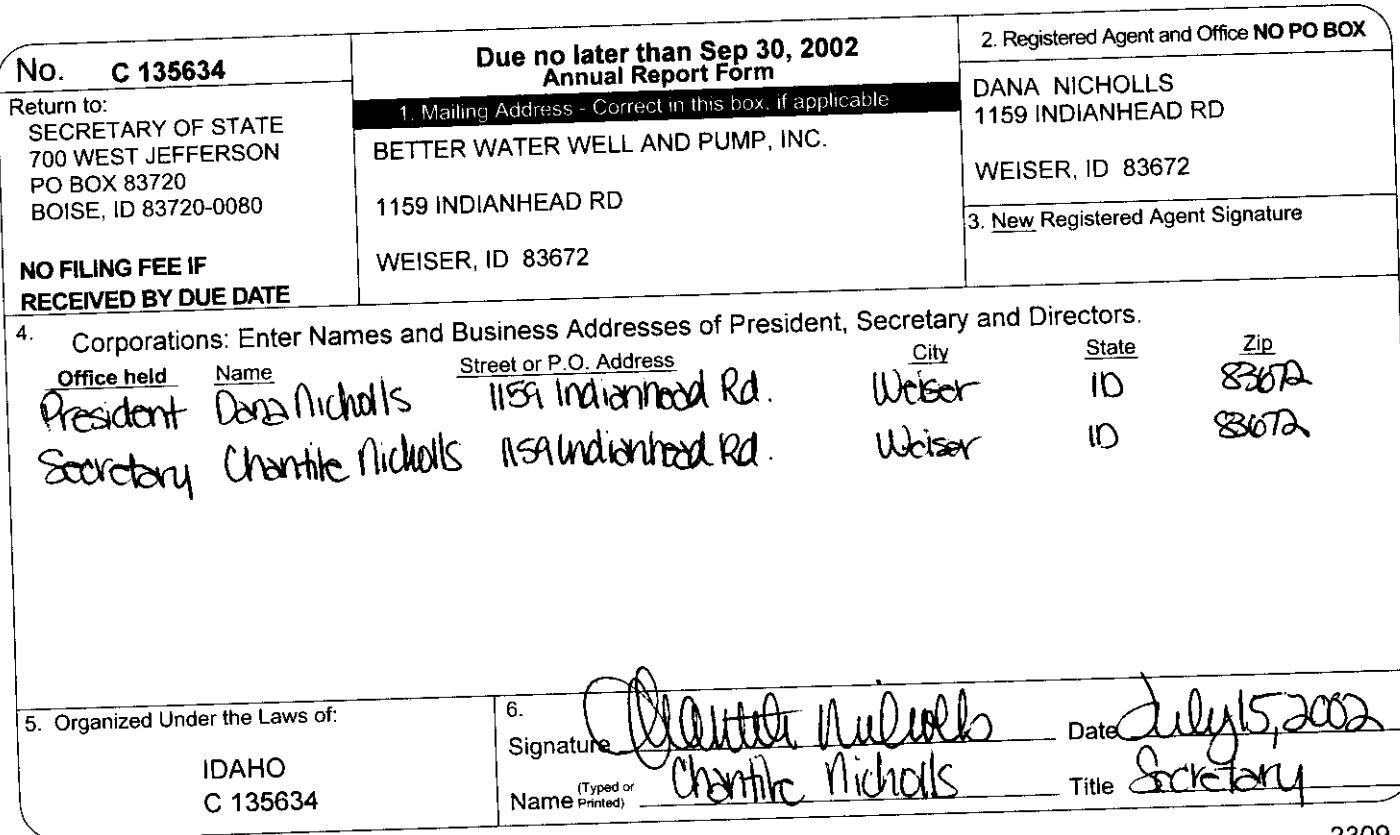 No. C 135634
Return to:
SECRETARY OF STATE
700 WEST JEFFERSON
PO BOX 83720
BOISE, ID 83720-0080
NO FILING FEE IF
RECEIVED BY DUE DATE
Due no later than Sep 30, 2002
Annual Report Form
1. Mailing Address - Correct in this box, if applicable
BETTER WATER WELL AND PUMP, INC.
1159 INDIANHEAD RD
WEISER, ID 83672
2. Registered Agent and Office NO PO BOX
DANA NICHOLLS
1159 INDIANHEAD RD
WEISER, ID 83672
3. New Registered Agent Signature
4. Corporations: Enter Names and Business Addresses of President, Secretary and Directors.
Office held Name Street or P.O. Address City State Zip
President Dana Nicholls 1159 Indianhead Rd. Weiser ID 83672
Secretary Chantile Nicholls 1159 Indianhead Rd. Weiser ID 83672
5. Organized Under the Laws of:
IDAHO
C 135634
6.
Signature Chantile Nicholls Date July 15, 2002
Name (Typed or Printed) Chantile Nicholls Title Secretary
2309